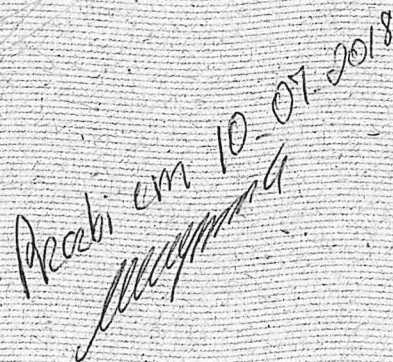 Recebi em 10-07-2018